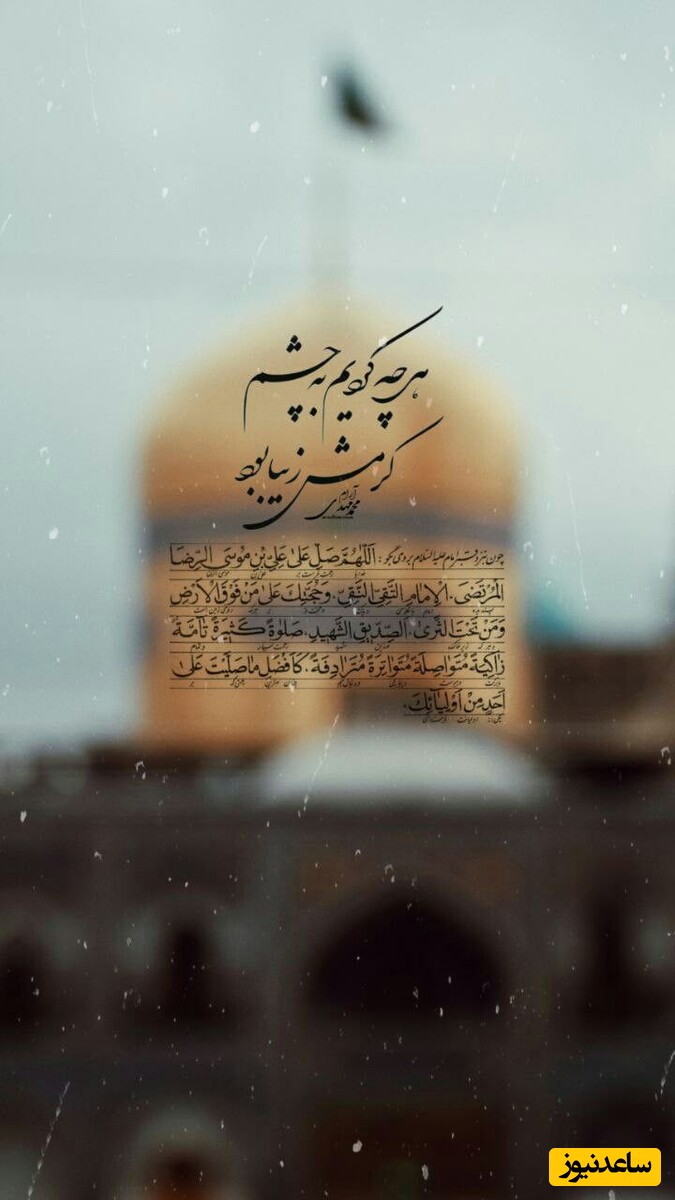 هر چه کردیم به چشم
کرمش زیبا بود
آرام
محمدمهدی
چون بنزد قبر امام علیه السلام بروی بگو: اَللّٰهُمَّ صَلِّ عَلىٰ عَلِيِّ بْنِ مُوسَى الرِّضَا
الْمُرْتَضىٰ، الْاِمَامِ التَّقِيِّ النَّقِيِّ، وَحُجَّتِكَ عَلىٰ مَنْ فَوْقَ الْاَرْضِ
وَمَنْ تَحْتَ الثَّرىٰ، الصِّدّيقِ الشَّهيدِ، صَلوٰةً كَثيرَةً تٰامَّةً
زٰاكِيَةً مُتَوٰاصِلَةً مُتَوٰاتِرَةً مُتَرٰادِفَةً، كَاَفْضَلِ مٰا صَلَّيْتَ عَلىٰ
اَحَدٍ مِنْ اَوْلِيٰائِكَ.
ساعدنیوز